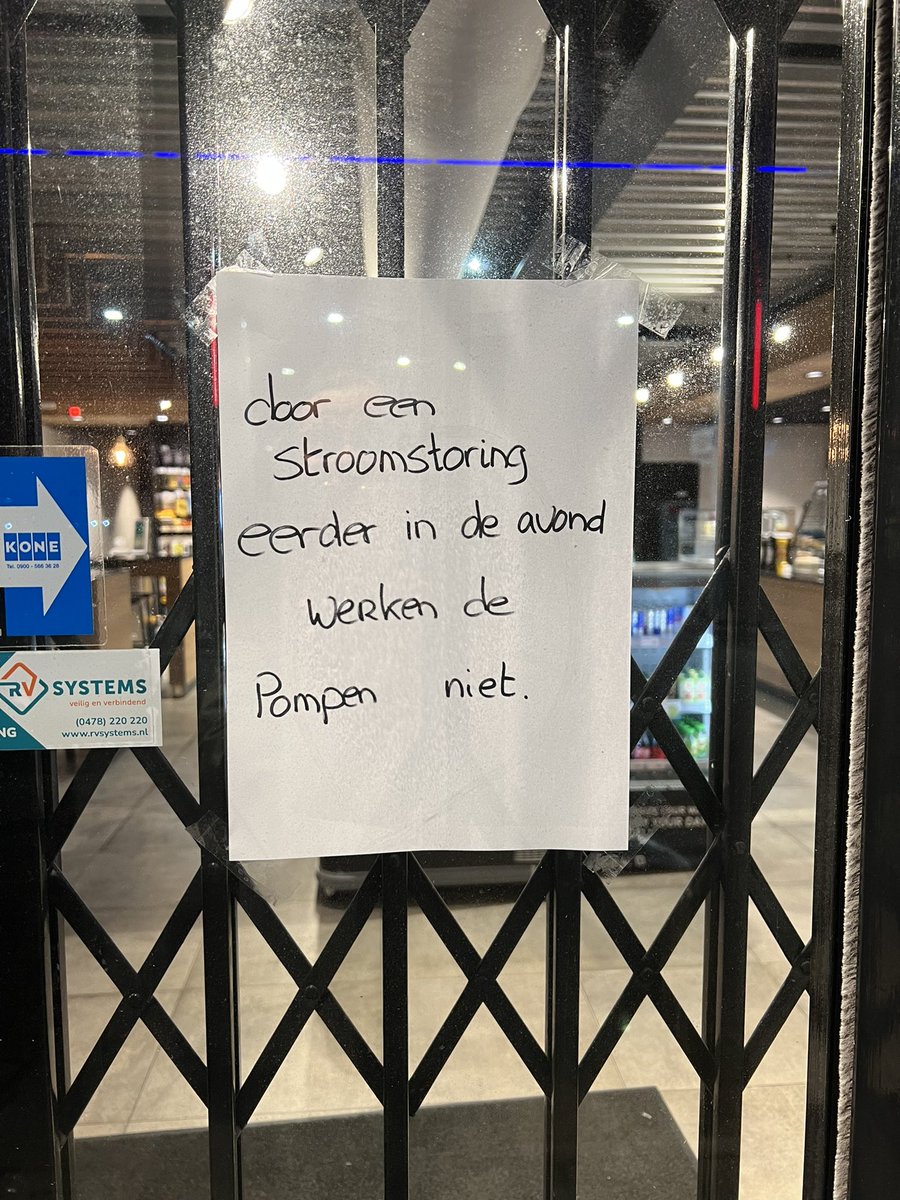 door een
stroomstoring
eerder in de avond
werken de
Pompen niet.
KONE
Tel. 0900 - 566 36 28
RV SYSTEMS
veilig en verbindend
(0478) 220 220
www.rvsystems.nl
NG